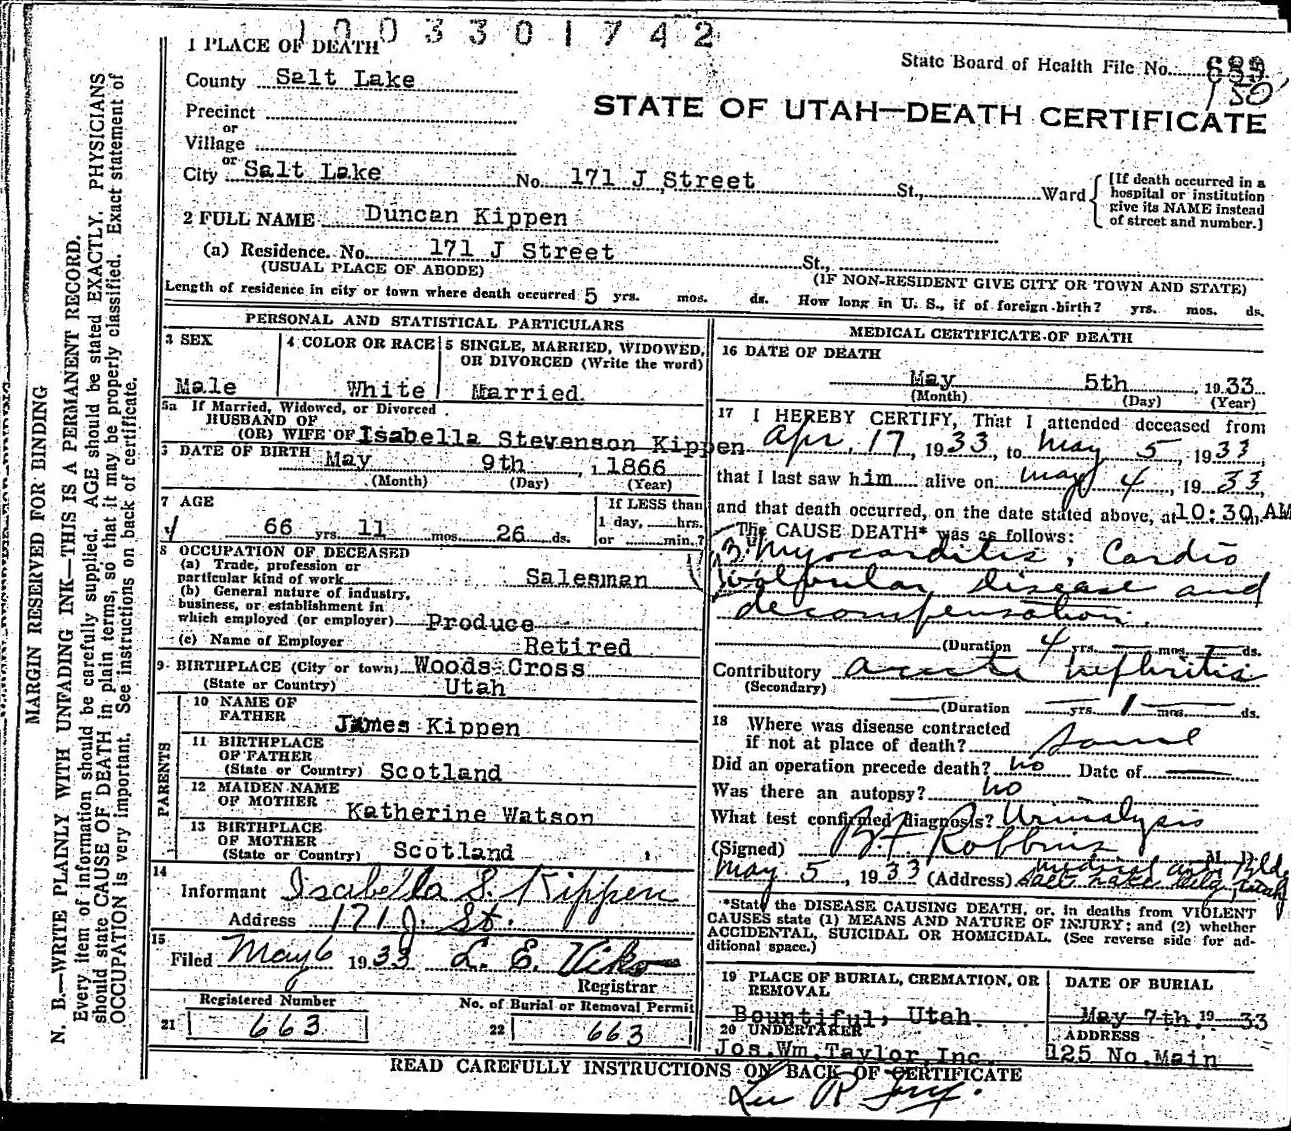 1003301742
1 PLACE OF DEATH
State Board of Health File No.
150
County Salt Lake
STATE OF UTAH—DEATH CERTIFICATE
Precinct
or
Village
or
City Salt Lake No. 171 J Street St., Ward
[If death occurred in a
hospital or institution
give its NAME instead
of street and number.]
2 FULL NAME Duncan Kippen
(a) Residence. No. 171 J Street St.,
(USUAL PLACE OF ABODE) (IF NON-RESIDENT GIVE CITY OR TOWN AND STATE)
Length of residence in city or town where death occurred 5 yrs. mos. ds. How long in U. S., if of foreign birth? yrs. mos. ds.
PERSONAL AND STATISTICAL PARTICULARS
3 SEX
Male
4 COLOR OR RACE
White
5 SINGLE, MARRIED, WIDOWED,
OR DIVORCED (Write the word)
Married.
5a If Married, Widowed, or Divorced
HUSBAND OF
(OR) WIFE OF Isabella Stevenson Kippen
DATE OF BIRTH May 9th , 1866
(Month) (Day) (Year)
7 AGE
66 yrs. 11 mos. 26 ds.
If LESS than
1 day, hrs.
or min.?
8 OCCUPATION OF DECEASED
(a) Trade, profession or
particular kind of work Salesman
(b) General nature of industry,
business, or establishment in
which employed (or employer) Produce
(c) Name of Employer Retired
9 BIRTHPLACE (City or town) Woods Cross
(State or Country) Utah
PARENTS
10 NAME OF
FATHER James Kippen
11 BIRTHPLACE
OF FATHER
(State or Country) Scotland
12 MAIDEN NAME
OF MOTHER Katherine Watson
13 BIRTHPLACE
OF MOTHER
(State or Country) Scotland
14
Informant Isabella S. Kippen
Address 171 J. St.
15
Filed May 6 1933 L. E. Viko
Registrar
Registered Number
21 663
No. of Burial or Removal Permit
22 663
MEDICAL CERTIFICATE OF DEATH
16 DATE OF DEATH
May 5th , 1933
(Month) (Day) (Year)
17 I HEREBY CERTIFY, That I attended deceased from
Apr. 17, 1933, to May 5, 1933
that I last saw him alive on May 4, 1933,
and that death occurred, on the date stated above, at 10:30 AM
The CAUSE DEATH* was as follows:
Myocarditis, Cardio
valvular disease and
decompensation.
(Duration 4 yrs. mos. ds.
Contributory acute nephritis
(Secondary)
(Duration yrs. 1 mos. ds.
18 Where was disease contracted
if not at place of death? Same
Did an operation precede death? no Date of
Was there an autopsy? no
What test confirmed diagnosis? Urinalysis
(Signed) Robbins M. D.
May 5, 1933 (Address) Medical Arts Bldg
Salt Lake City, Utah
*State the DISEASE CAUSING DEATH, or, in deaths from VIOLENT
CAUSES state (1) MEANS AND NATURE OF INJURY; and (2) whether
ACCIDENTAL, SUICIDAL OR HOMICIDAL. (See reverse side for ad-
ditional space.)
19 PLACE OF BURIAL, CREMATION, OR
REMOVAL
Bountiful, Utah
DATE OF BURIAL
May 7th. 19 33
20 UNDERTAKER
Jos. Wm. Taylor, Inc.
ADDRESS
125 No. Main
READ CAREFULLY INSTRUCTIONS ON BACK OF CERTIFICATE
MARGIN RESERVED FOR BINDING
N. B.—WRITE PLAINLY WITH UNFADING INK—THIS IS A PERMANENT RECORD.
Every item of information should be carefully supplied. AGE should be stated EXACTLY. PHYSICIANS
should state CAUSE OF DEATH in plain terms, so that it may be properly classified. Exact statement of
OCCUPATION is very important. See instructions on back of certificate.